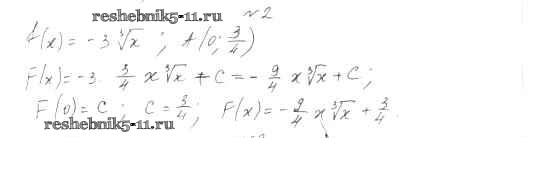 reshebnik5-11.ru №2
f(x) = -3∛x ; A(0; 3/4)
F(x) = -3 · 3/4 x∛x + C = - 9/4 x∛x + C ;
F(0) = C ; C = 3/4 ; F(x) = - 9/4 x∛x + 3/4 .
reshebnik5-11.ru